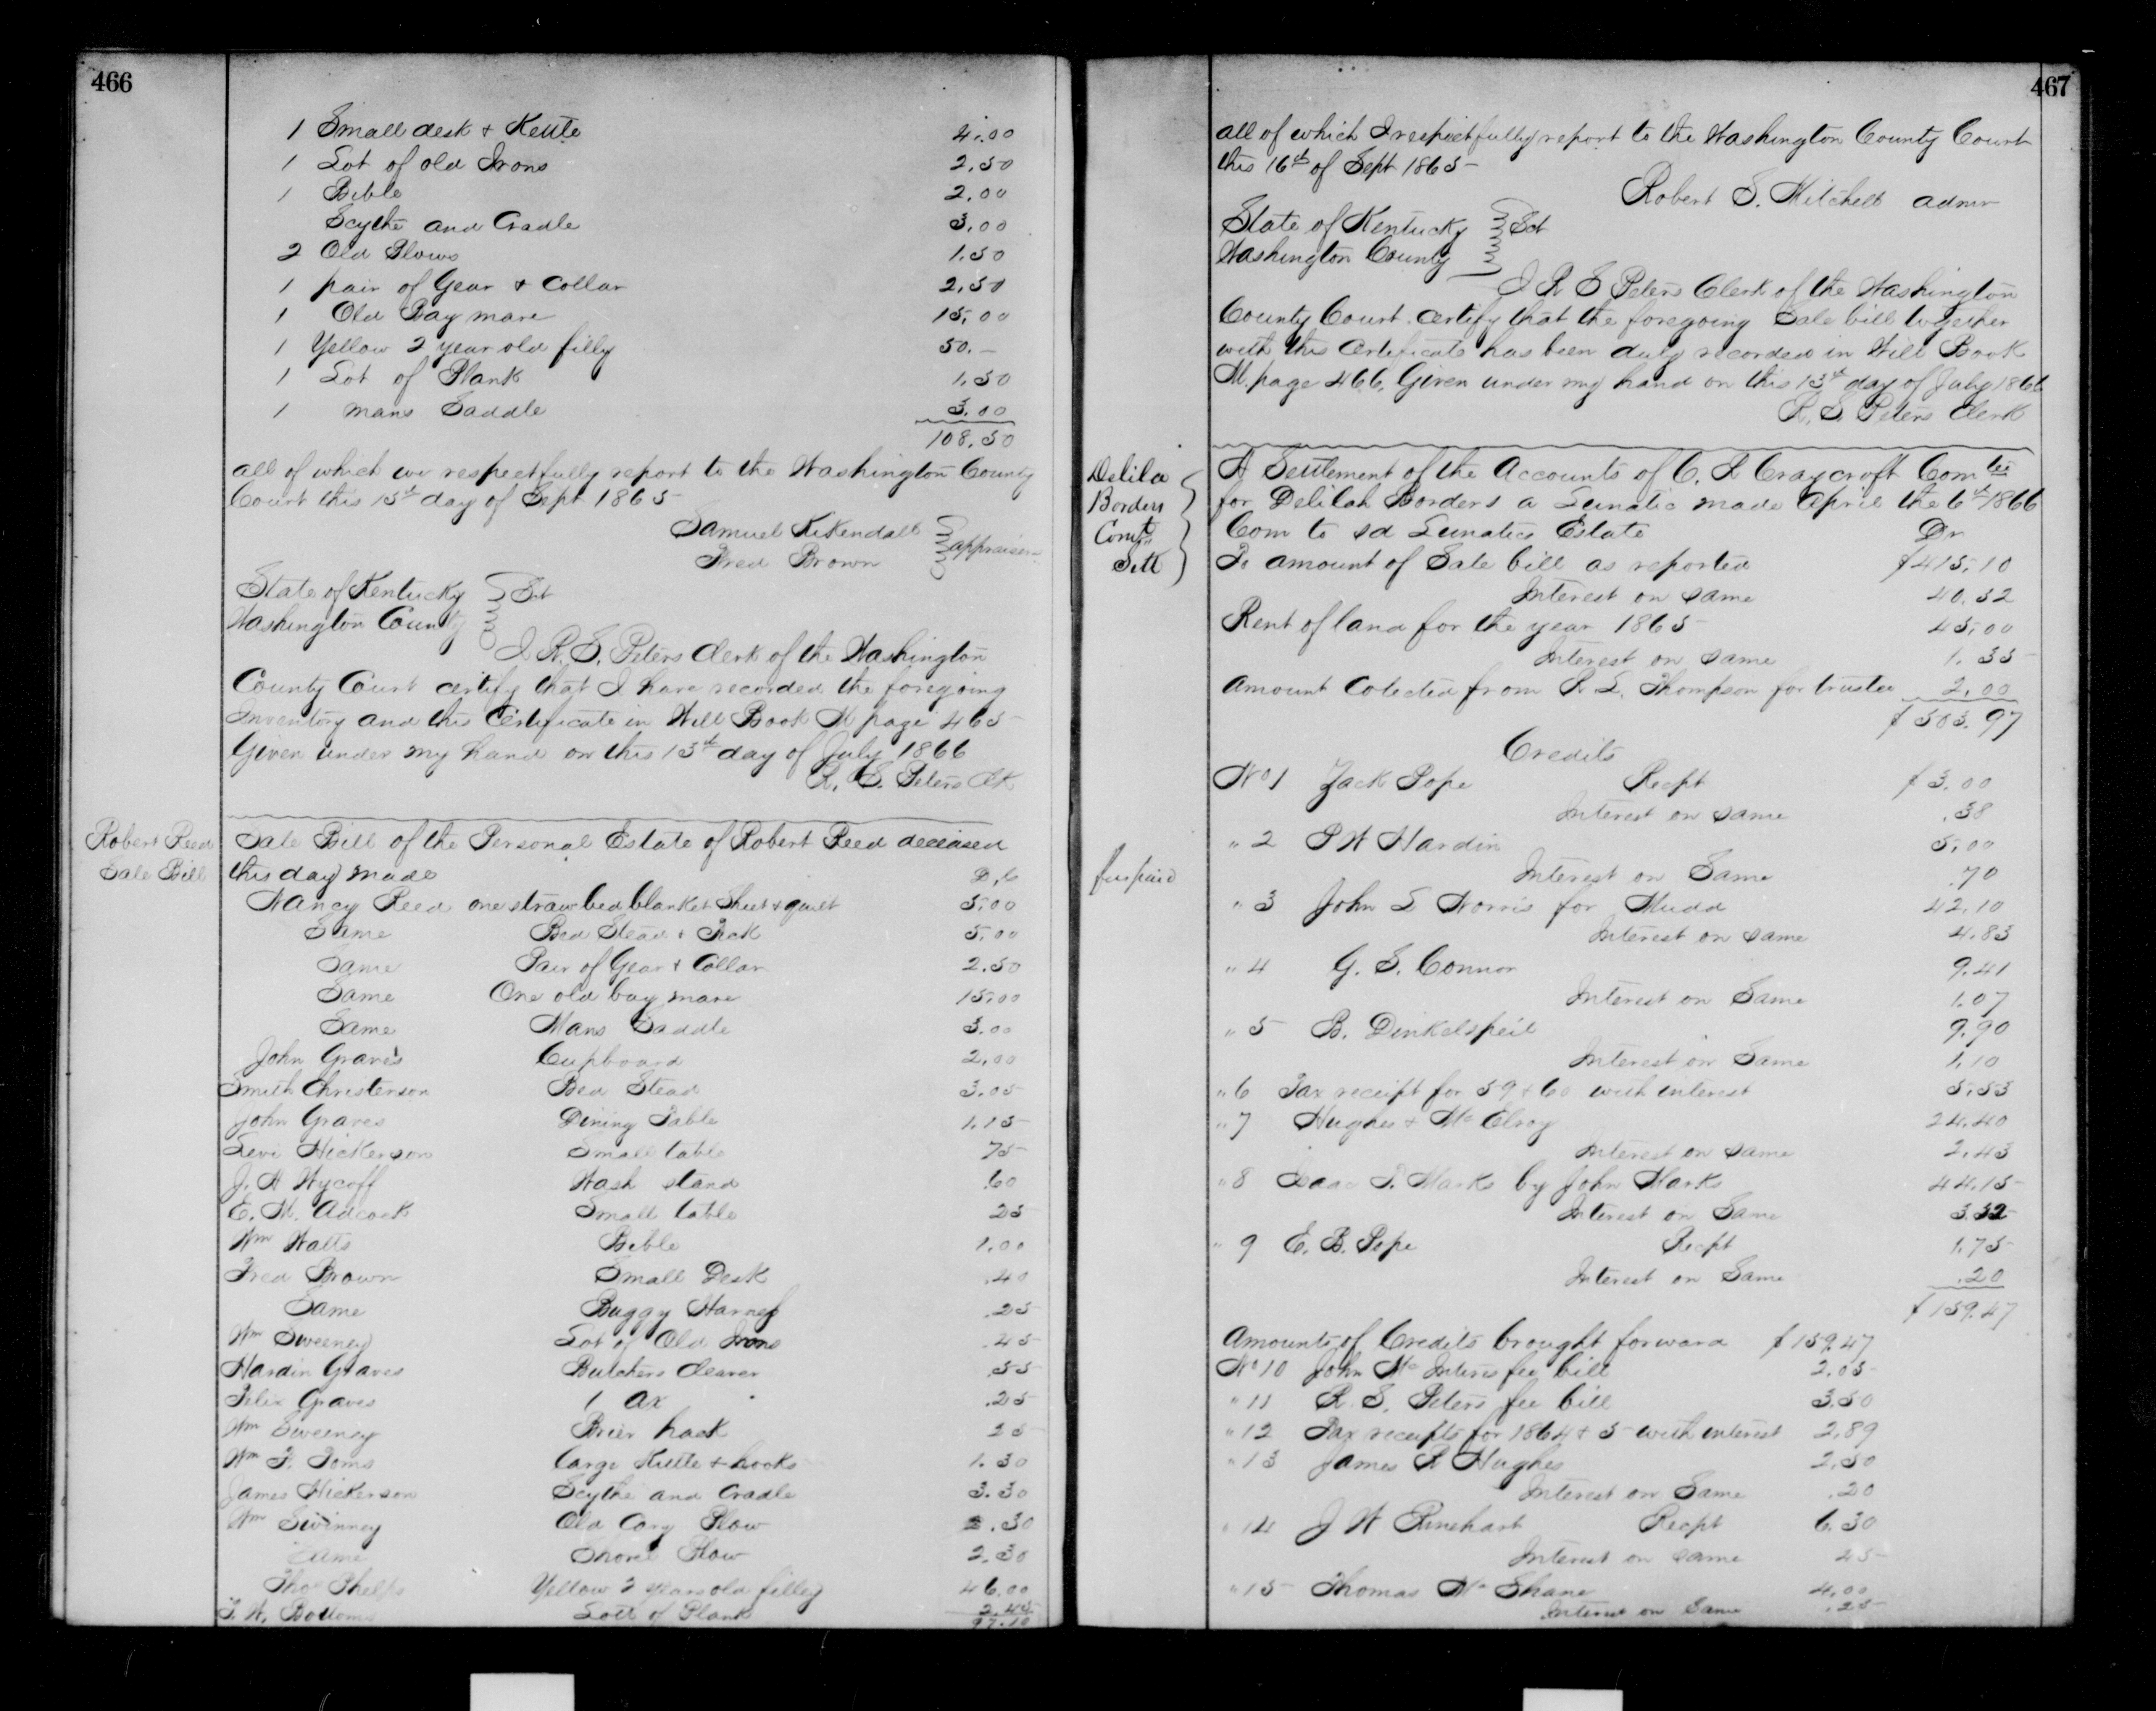 466
1 Small desk & Kettle 4.00
1 Lot of old Irons 2.50
1 Bible 2.00
Scythe and Cradle 3.00
2 Old Plows 1.50
1 pair of Gear & Collar 2.50
1 Old Bay mare 15.00
1 Yellow 2 year old filly 50.—
1 Lot of Plank 1.50
1 mans Saddle 3.00
108.50
all of which we respectfully report to the Washington County
Court this 15th day of Sept 1865
Samuel KiKendall
Fred Brown appraisers
State of Kentucky Sct
Washington County
I R. S. Peters Clerk of the Washington
County Court certify that I have recorded the foregoing
Inventory and this Certificate in Will Book M page 465
Given under my hand on this 13th day of July 1866
R. S. Peters Clk
Robert Reed
Sale Bill
Sale Bill of the Personal Estate of Robert Reed deceased
this day made D,C
Nancy Reed one straw bed blanket Sheet & quilt 5.00
Same Bed Stead & Tick 5.00
Same Pair of Gear & Collar 2.50
Same One old bay mare 15.00
Same Mans Saddle 3.00
John Graves Cupboard 2.00
Smith Christerson Bed Stead 3.05
John Graves Dining Table 1.15
Levi Hickerson Small table 75
J. H Wycoff Wash stand .60
E. M. Adcock Small table 25
Wm Watts Bible 1.00
Fred Brown Small Desk .40
Same Buggy Harness .25
Wm Sweeney Lot of Old Irons .45
Hardin Graves Butchers Cleaver .55
Felix Graves 1 Ax .25
Wm Sweeney Brier hook 25
Wm F. Toms Large Kettle & hooks 1.30
James Hickerson Scythe and Cradle 3.30
Wm Swinney Old Cary Plow .30
Same Shovel Plow 2.30
Thos Phelps Yellow 2 years old filley 46.00
T. W. Bottoms Lott of Plank 2.45
97.10
467
all of which I respectfully report to the Washington County Court
this 16th of Sept 1865
Robert S. Mitchell admr
State of Kentucky Sct
Washington County
I R S Peters Clerk of the Washington
County Court certify that the foregoing Sale bill together
with this certificate has been duly recorded in Will Book
M. page 466, Given under my hand on this 13th day of July 1866
R. S. Peters Clerk
Delila
Borders
Comts
Sett
A Settlement of the Accounts of C. R Craycroft Comtee
for Delilah Borders a Lunatic made April the 6th 1866
Com to sd Lunatics Estate Dr
To amount of Sale bill as reported $415.10
Interest on same 40.52
Rent of land for the year 1865 45.00
Interest on same 1.35
Amount Colected from R L. Thompson for trustee 2.00
$503.97
Credits
No 1 Zack Pope Recpt $3.00
Interest on same .38
" 2 P W Hardin 5.00
fee paid
Interest on Same .70
" 3 John S Norris for Mudd 42.10
Interest on same 4.83
" 4 G. S. Connor 9.41
Interest on Same 1.07
" 5 B. Dinkelspeil 9.90
Interest on Same 1.10
" 6 Tax receipt for 59 & 60 with interest 5.53
" 7 Hughes & McElroy 24.40
Interest on same 2.43
" 8 Isaac T. Marks by John Marks 44.15
Interest on Same 3.32
" 9 E. B. Pope Recpt 1.75
Interest on Same .20
$159.47
Amounts of Credits brought forward $159.47
No 10 John McIntires fee bill 2.05
" 11 R. S. Peters fee bill 3.50
" 12 Tax receipts for 1864 & 5 with interest 2.89
" 13 James R Hughes 2.50
Interest on Same .20
" 14 J W Rinehart Recpt 6.30
Interest on same 45
" 15 Thomas McShane 4.00
Interest on Same .25